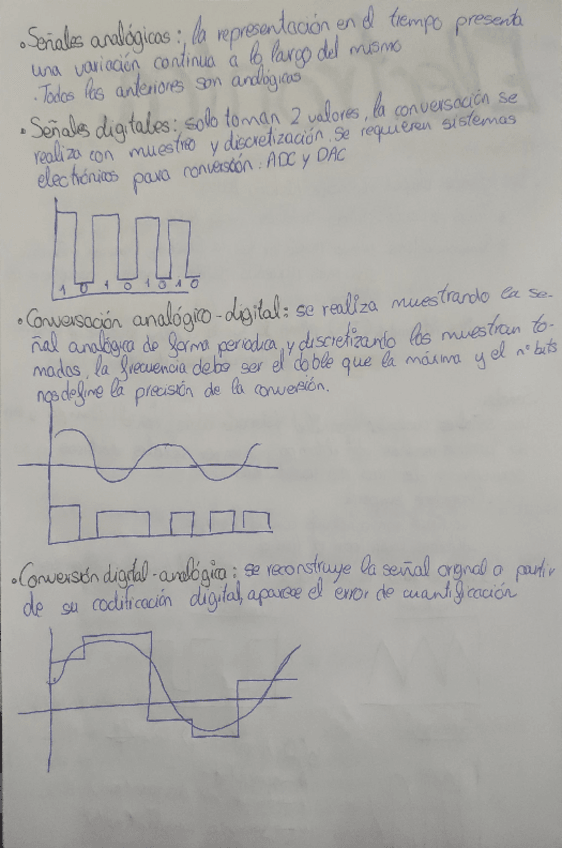 • Señales analógicas: la representación en el tiempo presenta
una variación continua a lo largo del mismo
· Todas las anteriores son analógicas
• Señales digitales: solo toman 2 valores, la conversación se
realiza con muestreo y discretización. se requieren sistemas
electrónicos para conversión: ADC y DAC
1 0 1 0 1 0 1 0
• Conversación analógico-digital: se realiza muestrando la se-
ñal analógica de forma periodica, y discretizando las muestran to-
madas, la frecuencia debe ser el doble que la máxima y el nº bits
nos define la precisión de la conversión.
• Conversión digital-analógica: se reconstruye la señal orignal a partir
de su codificación digital, aparece el error de cuantificación